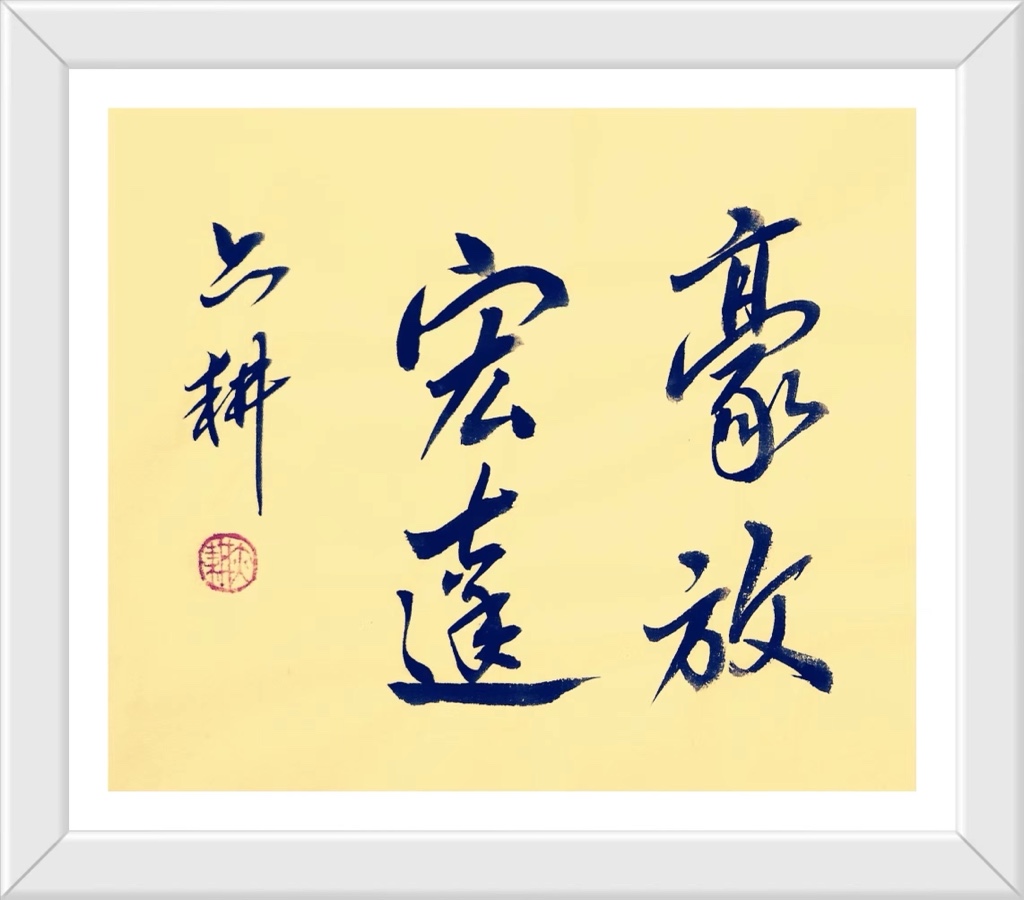 豪放
宏達
耕